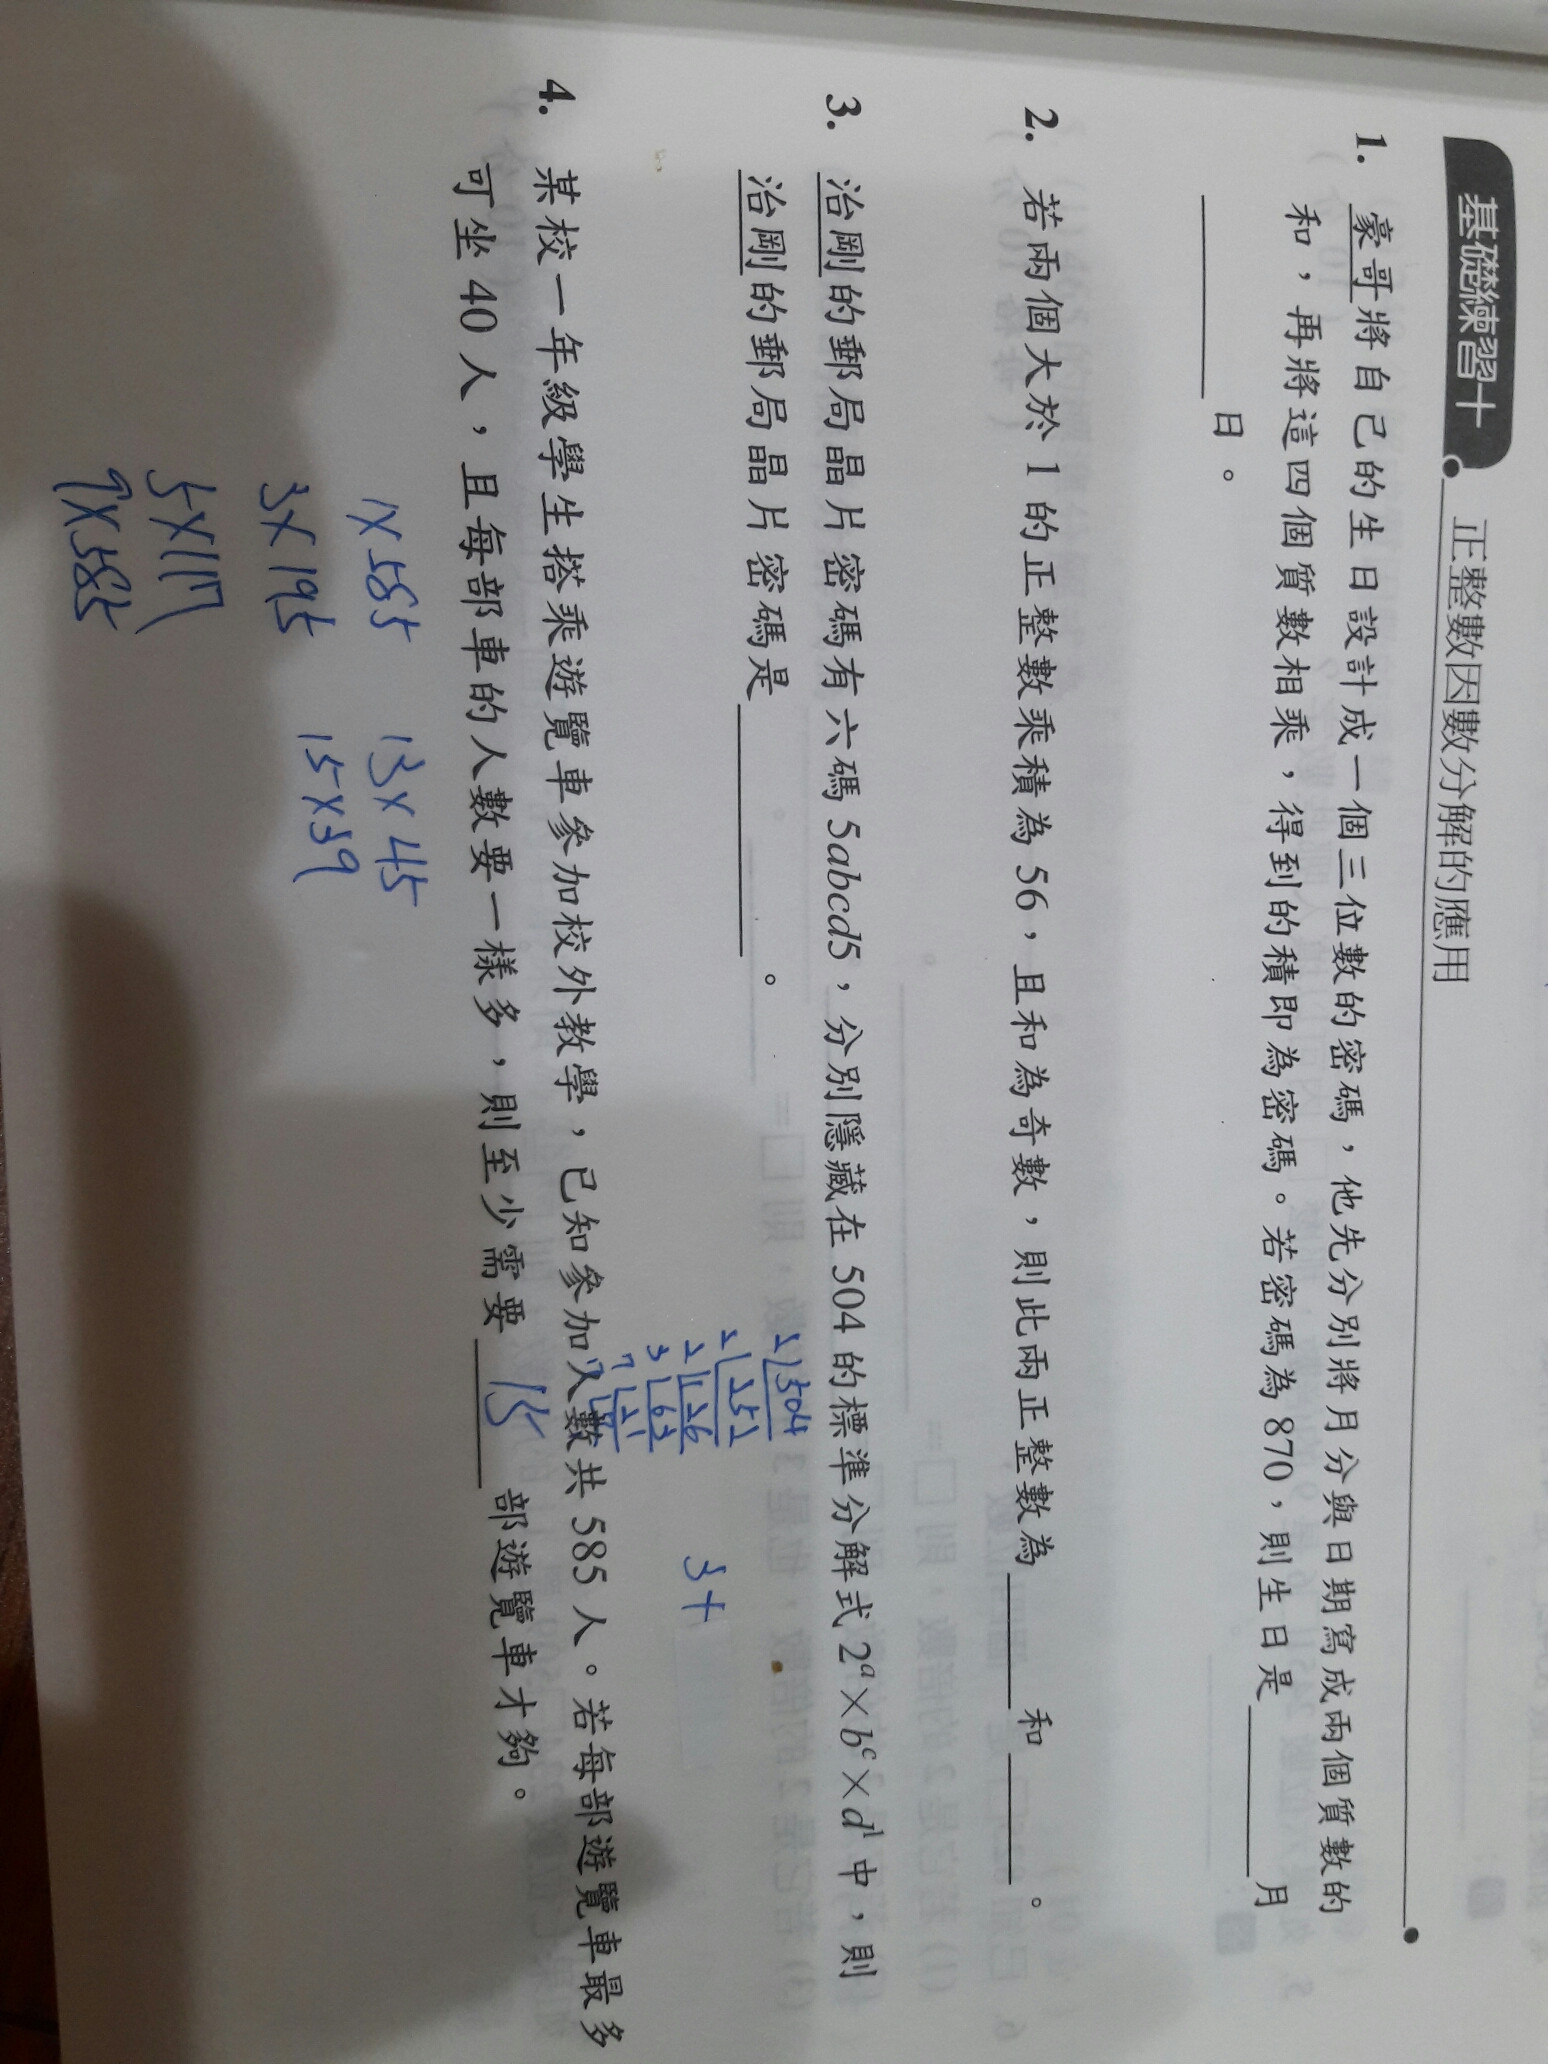 基礎練習十 正整數因數分解的應用
1. 豪哥將自己的生日設計成一個三位數的密碼，他先分別將月分與日期寫成兩個質數的
和，再將這四個質數相乘，得到的積即為密碼。若密碼為 870，則生日是______月
______日。
2. 若兩個大於 1 的正整數乘積為 56，且和為奇數，則此兩正整數為______和______。
2 504
2 252
2 126
3 63
7 21
3+
3. 治剛的郵局晶片密碼有六碼 5abcd5，分別隱藏在 504 的標準分解式 2ᵃ×bᶜ×d¹ 中，則
治剛的郵局晶片密碼是______。
4. 某校一年級學生搭乘遊覽車參加校外教學，已知參加人數共 585 人。若每部遊覽車最多
可坐 40 人，且每部車的人數要一樣多，則至少需要 15 部遊覽車才夠。
1×585 13×45
3×195 15×39
5×117
9×585